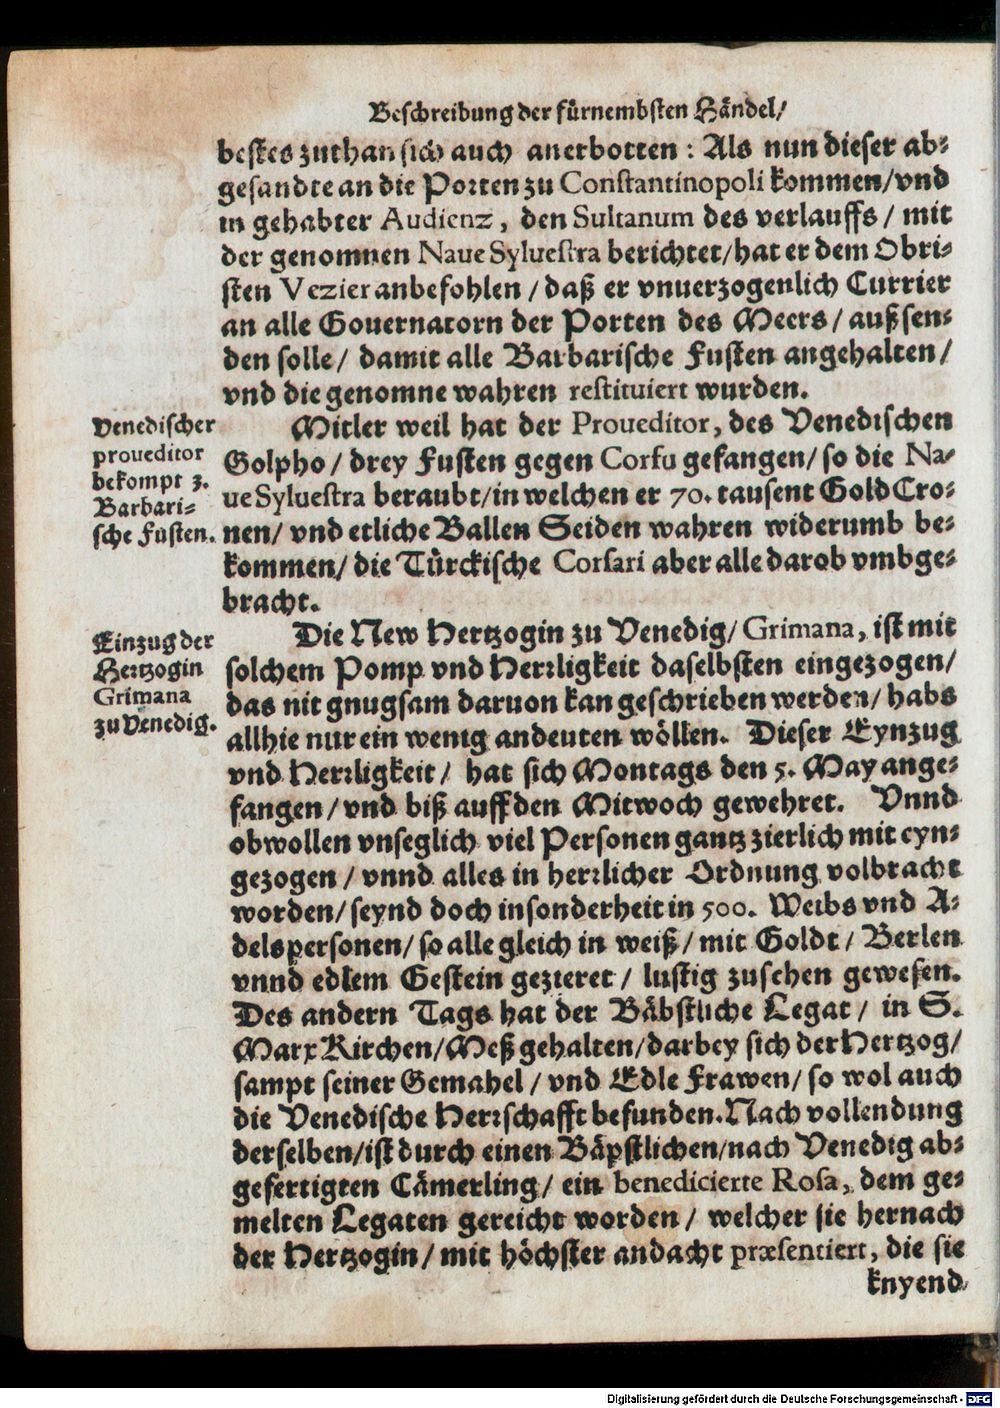 Beschreibung der fürnembsten Händel/
bestes zuthan sich auch anerbotten : Als nun dieser ab-
gesandte an die Porten zu Constantinopoli kommen/vnd
in gehabter Audienz, den Sultanum des verlauffs / mit
der genomnen Naue Syluestra berichtet/hat er dem Obri-
sten Vezier anbefohlen / daß er vnuerzogenlich Currier
an alle Gouernatorn der Porten des Meers / auß sen-
den solle / damit alle Barbarische Fusten angehalten /
vnd die genomne wahren restituiert wurden.
Mitler weil hat der Proueditor, des Venedischen
Golpho / drey Fusten gegen Corfu gefangen/ so die Na-
ue Syluestra beraubt/in welchen er 70. tausent Gold Cro-
nen/ vnd etliche Ballen Seiden wahren widerumb be-
kommen/ die Türckische Corsari aber alle darob vmbge-
bracht.
Venedischer
proueditor
bekompt 3.
Barbari-
sche Fusten.
Die New Hertzogin zu Venedig/ Grimana, ist mit
solchem Pomp vnd Herrligkeit daselbsten eingezogen/
das nit gnugsam daruon kan geschrieben werden/ habs
allhie nur ein wenig andeuten wöllen. Dieser Eynzug
vnd Herrligkeit / hat sich Montags den 5. May ange-
fangen / vnd biß auff den Mitwoch gewehret. Vnnd
obwollen vnseglich viel Personen gantz zierlich mit eyn-
gezogen / vnnd alles in herrlicher Ordnung volbracht
worden/ seynd doch insonderheit in 500. Weibs vnd A-
delspersonen/ so alle gleich in weiß / mit Goldt / Berlen
vnnd edlem Gestein gezieret / lustig zusehen gewesen.
Des andern Tags hat der Bäbstliche Legat / in S.
Marx Kirchen/Meß gehalten/darbey sich der Hertzog/
sampt seiner Gemahel / vnd Edle Frawen/ so wol auch
die Venedische Herrschafft befunden. Nach vollendung
derselben/ist durch einen Bäpstlichen/nach Venedig ab-
gefertigten Cämerling/ ein benedicierte Rosa, dem ge-
melten Legaten gereicht worden / welcher sie hernach
der Hertzogin / mit höchster andacht præsentiert, die sie
knyend
Einzug der
Hertzogin
Grimana
zu Venedig.
Digitalisierung gefördert durch die Deutsche Forschungsgemeinschaft - DFG